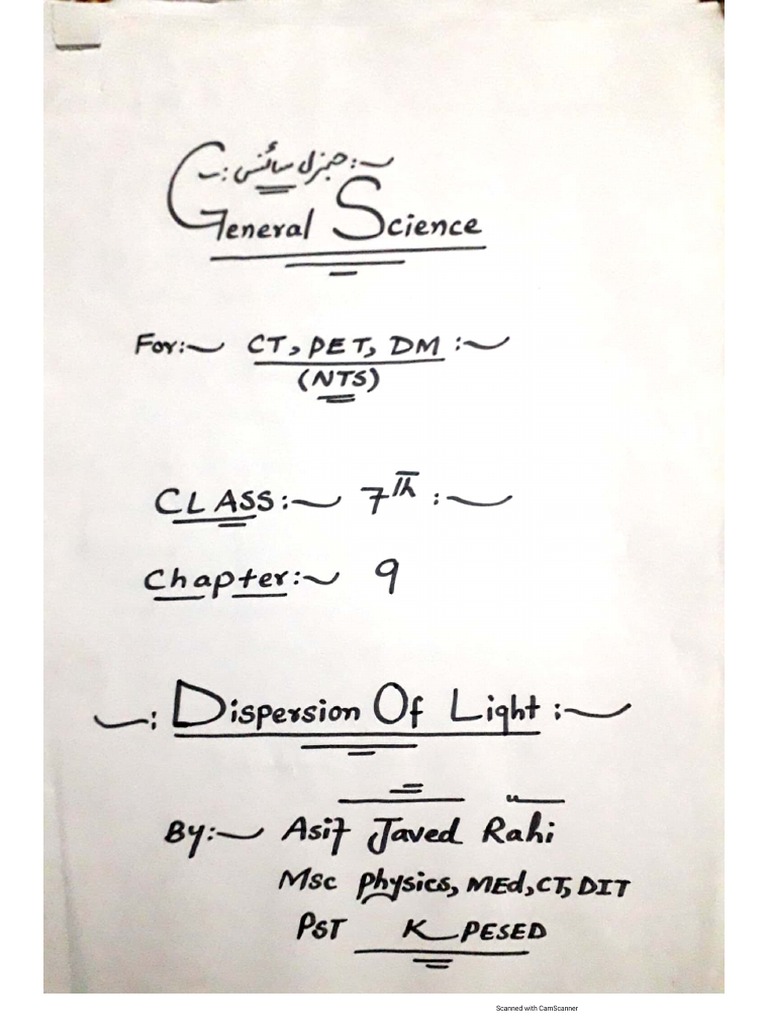 ~: جنرل سائنس :~
General Science
For:~ CT, PET, DM :~
(NTS)
CLASS:~ 7th :~
Chapter:~ 9
~: Dispersion Of Light :~
By:~ Asif Javed Rahi
Msc Physics, MEd, CT, DIT
PST KPESED
Scanned with CamScanner